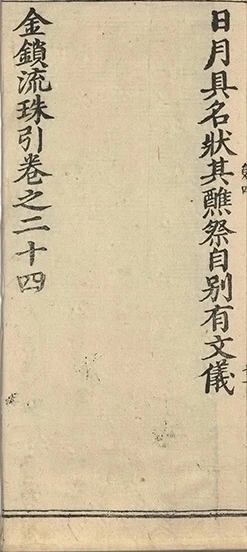 日月具名狀其醮祭自别有文儀
金鎖流珠引卷之二十四